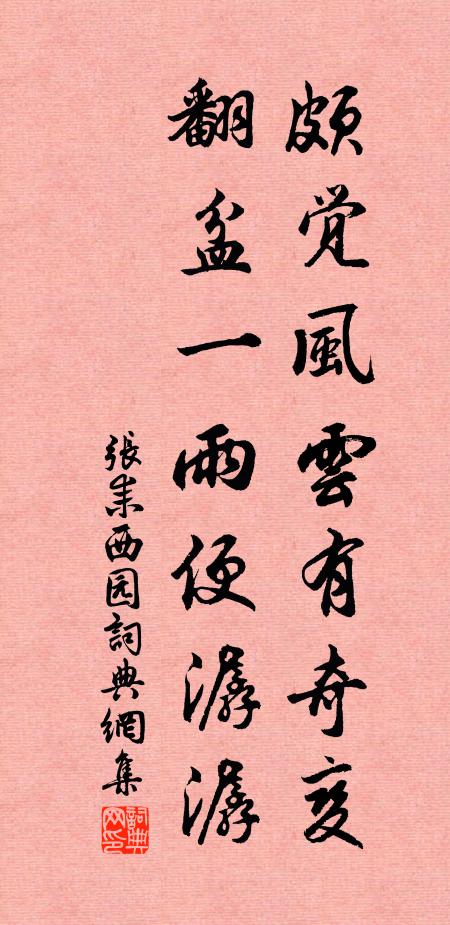 颇觉風雲有奇变
翻盆一雨便潺潺
張耒西园詞典網集
詞典网印